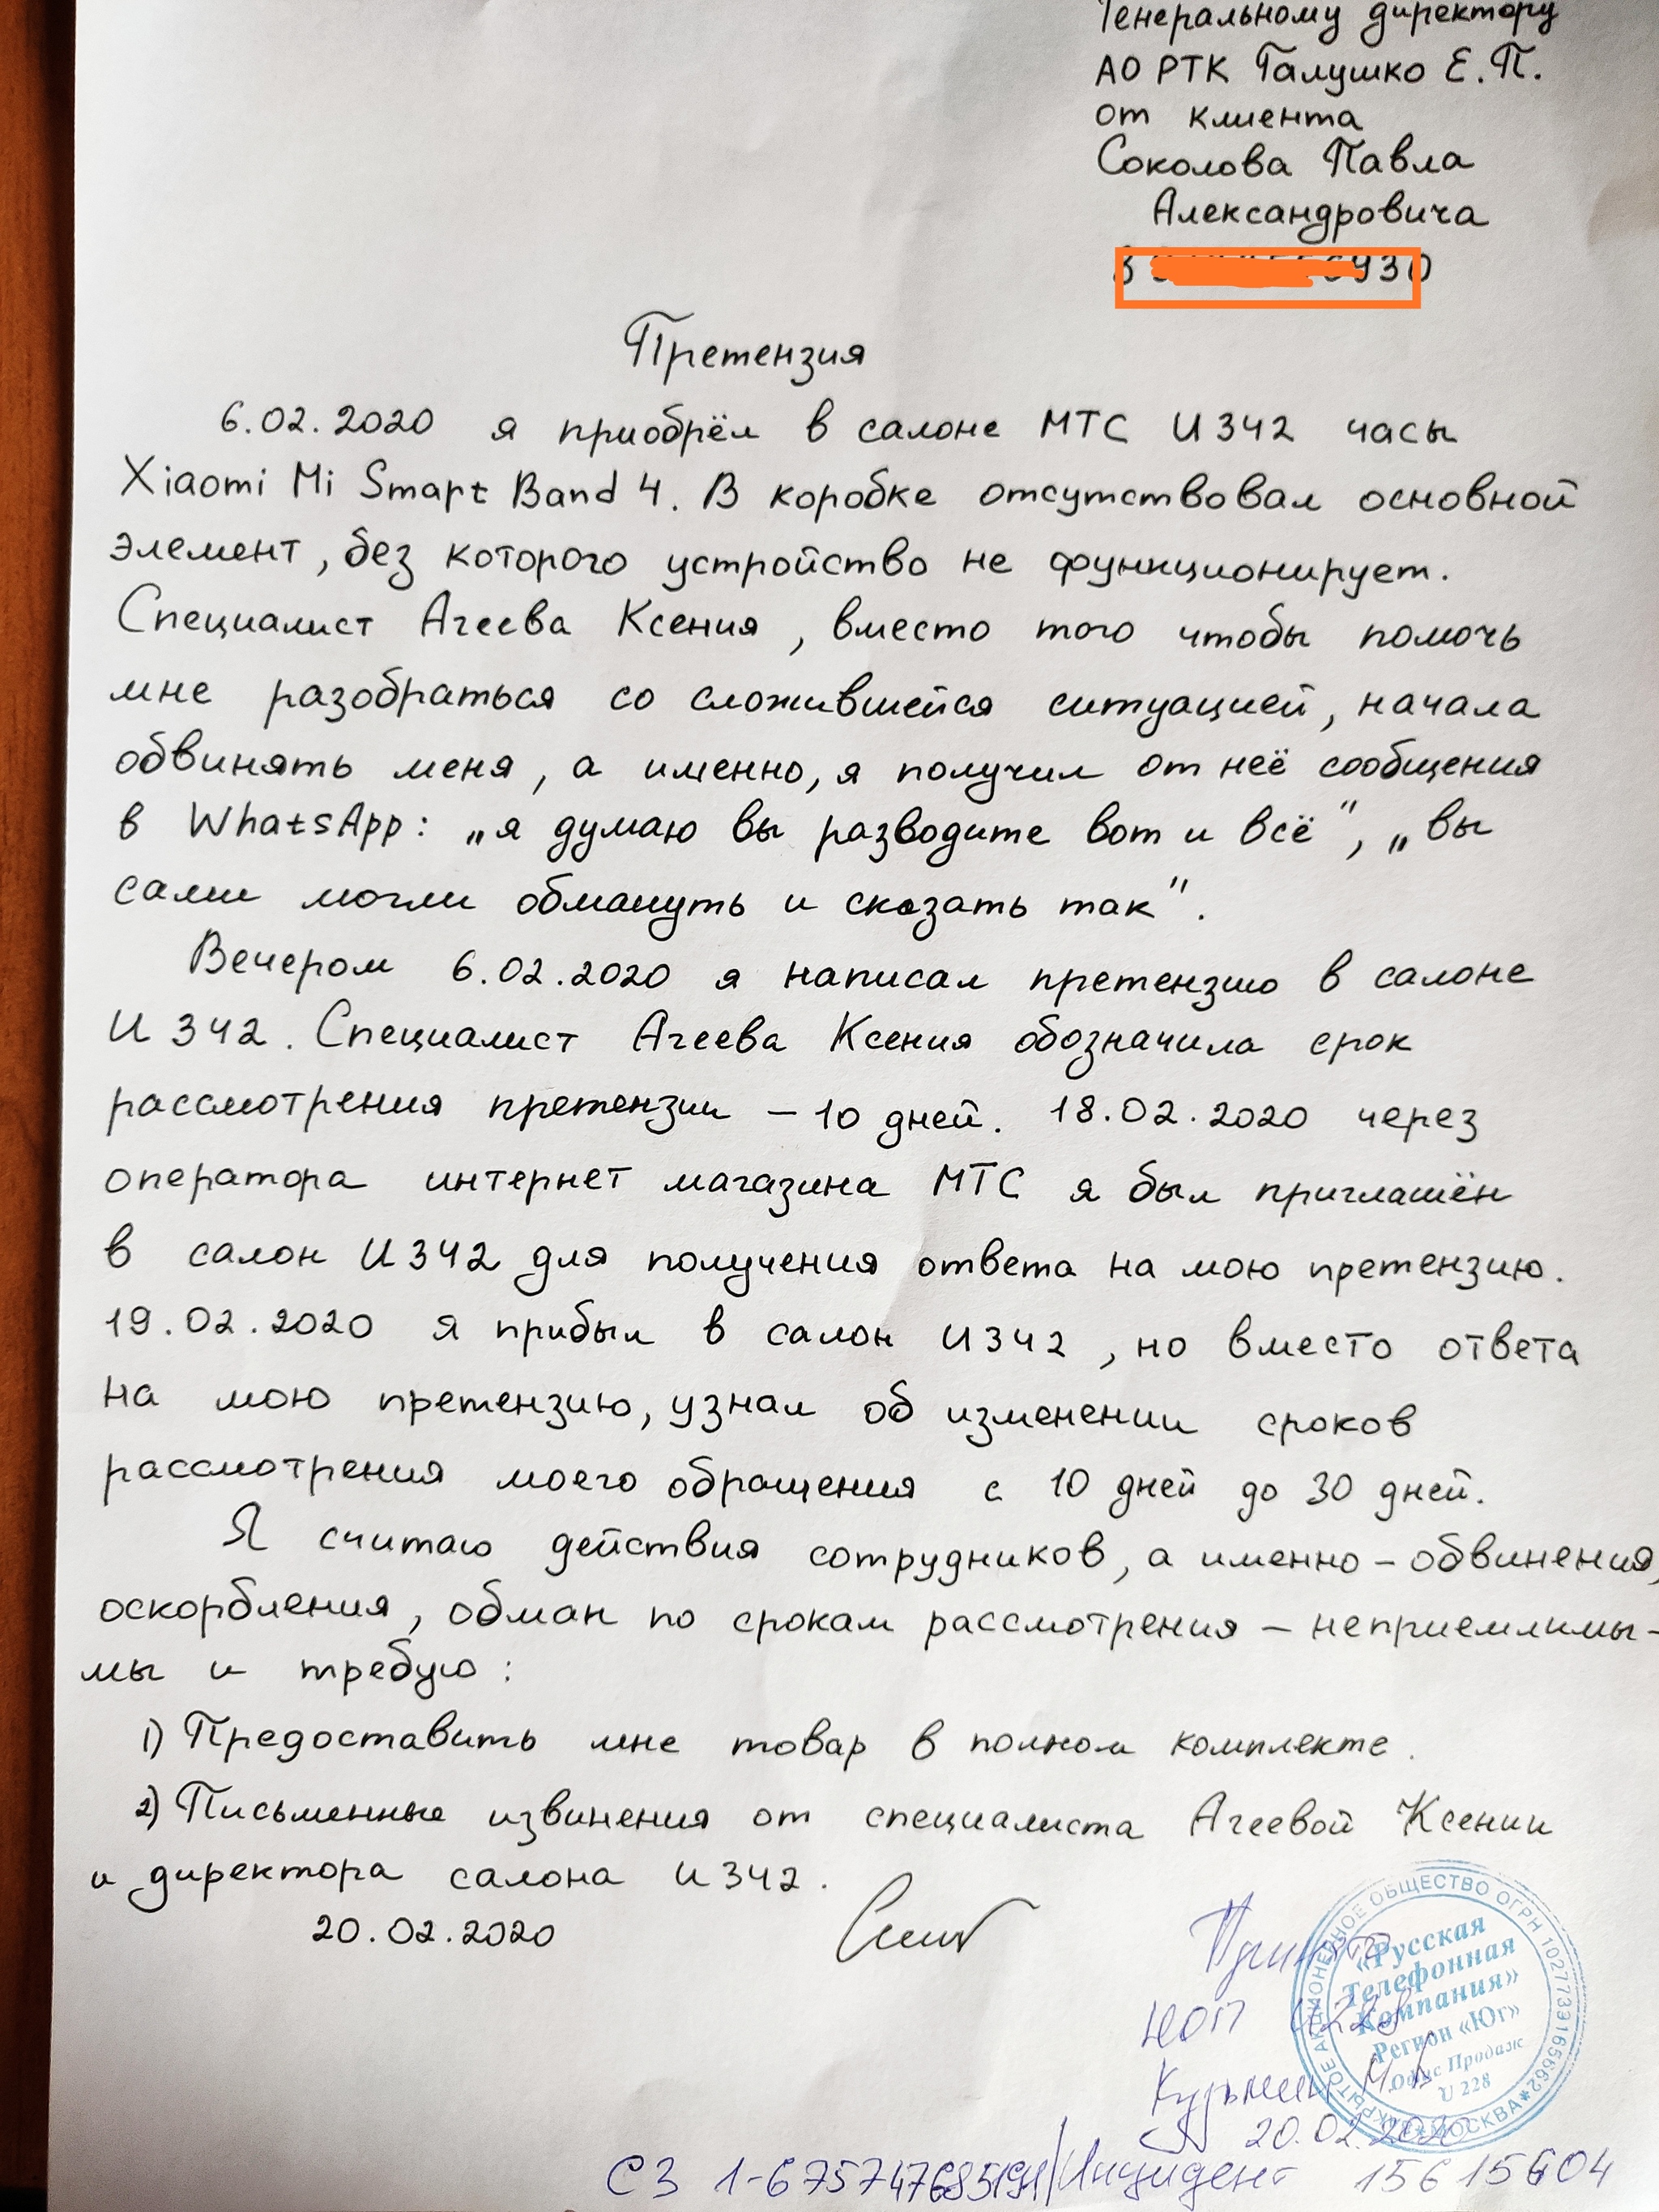 Генеральному директору
АО РТК Галушко Е.П.
от клиента
Соколова Павла
Александровича
Претензия
6.02.2020 я приобрёл в салоне МТС U342 часы
Xiaomi Mi Smart Band 4. В коробке отсутствовал основной
элемент, без которого устройство не функционирует.
Специалист Агеева Ксения, вместо того чтобы помочь
мне разобраться со сложившейся ситуацией, начала
обвинять меня, а именно, я получил от неё сообщения
в WhatsApp: „я думаю вы разводите вот и всё", „вы
сами могли обмануть и сказать так".
Вечером 6.02.2020 я написал претензию в салоне
U342. Специалист Агеева Ксения обозначила срок
рассмотрения претензии – 10 дней. 18.02.2020 через
оператора интернет магазина МТС я был приглашён
в салон U342 для получения ответа на мою претензию.
19.02.2020 я прибыл в салон U342, но вместо ответа
на мою претензию, узнал об изменении сроков
рассмотрения моего обращения с 10 дней до 30 дней.
Я считаю действия сотрудников, а именно – обвинения,
оскорбления, обман по срокам рассмотрения – неприемлимы-
мы и требую:
1) Предоставить мне товар в полном комплекте.
2) Письменные извинения от специалиста Агеевой Ксении
и директора салона U342.
20.02.2020
«Русская
Телефонная
Компания»
Регион «Юг»
Офис Продаж
U 228
АКЦИОНЕРНОЕ ОБЩЕСТВО ОГРН 1027739165662 * МОСКВА *
НОП U228
20.02.2020
СЗ Инцидент 15615604